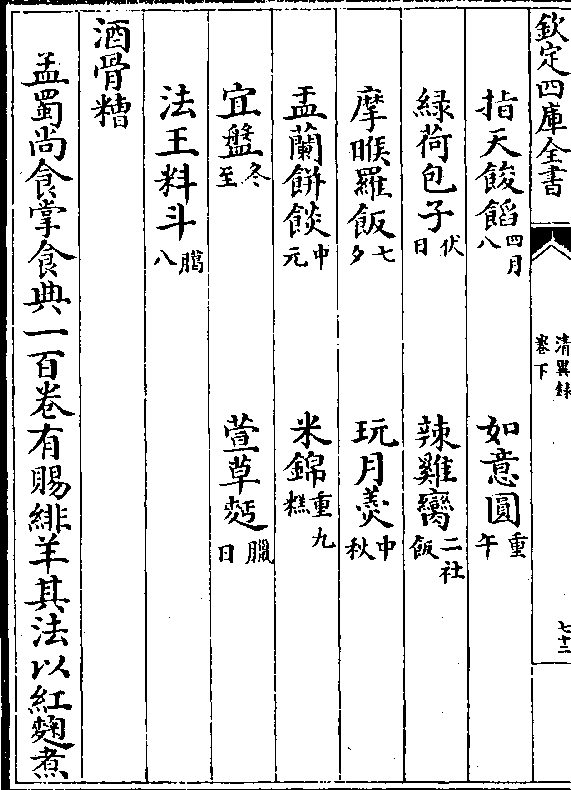 欽定四庫全書
清異録
卷下
七十二
指天餕餡四月八 如意圓重午
綠荷包子伏日 辣雞臠二社飯
摩睺羅飯七夕 玩月羹中秋
盂蘭餅餤中元 米錦重九糕
宜盤冬至 萱草麪臘日
法王料斗臈八
酒骨糟
孟蜀尚食掌食典一百卷有賜緋羊其法以紅麴煮